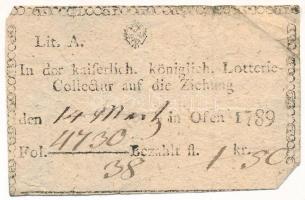 Lit. A.
In der kaiserlich. königlich. Lotterie-
Collectur auf die Ziehung
den 14 Martz in Ofen 1789
Fol. 4730 Bezahlt fl. 1 kr. 30
38